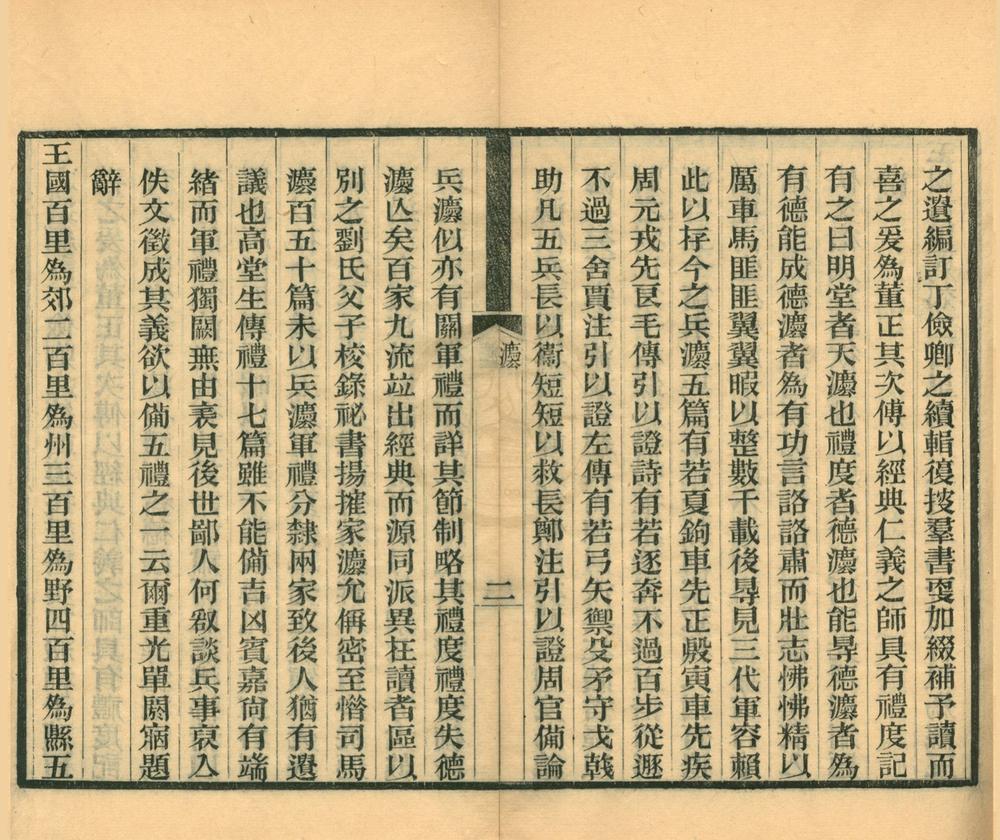 之遺編訂丁儉卿之續輯復挍羣書叓加綴補予讀而
喜之爰為董正其次傅以經典仁義之師具有禮度記
有之曰明堂者天灋也禮度者德灋也能㝵德灋者為
有德能成德灋者為有功言詻詻肅而壯志怫怫精以
厲車馬匪匪翼翼暇以整數千載後㝵見三代軍容賴
此以存今之兵灋五篇有若夏鉤車先正殷寅車先疾
周元戎先良毛傳引以證詩有若逐奔不過百步從遯
不過三舍賈注引以證左傳有若弓矢禦殳矛守戈戟
助凡五兵長以衞短短以救長鄭注引以證周官備論
灋
二
兵灋似亦有關軍禮而詳其節制略其禮度禮度失德
灋亾矣百家九流竝出經典而源同派異在讀者區以
別之劉氏父子校錄祕書揚搉家灋允偁密至憯司馬
灋百五十篇未以兵灋軍禮分隸兩家致後人猶有遺
議也高堂生傳禮十七篇雖不能備吉凶賓嘉尙有端
緒而軍禮獨闕無由表見後世鄙人何敢談兵事裒入
佚文徵成其義欲以備五禮之一云爾重光單閼㾛題
辭
王國百里為郊二百里為州三百里為野四百里為縣五